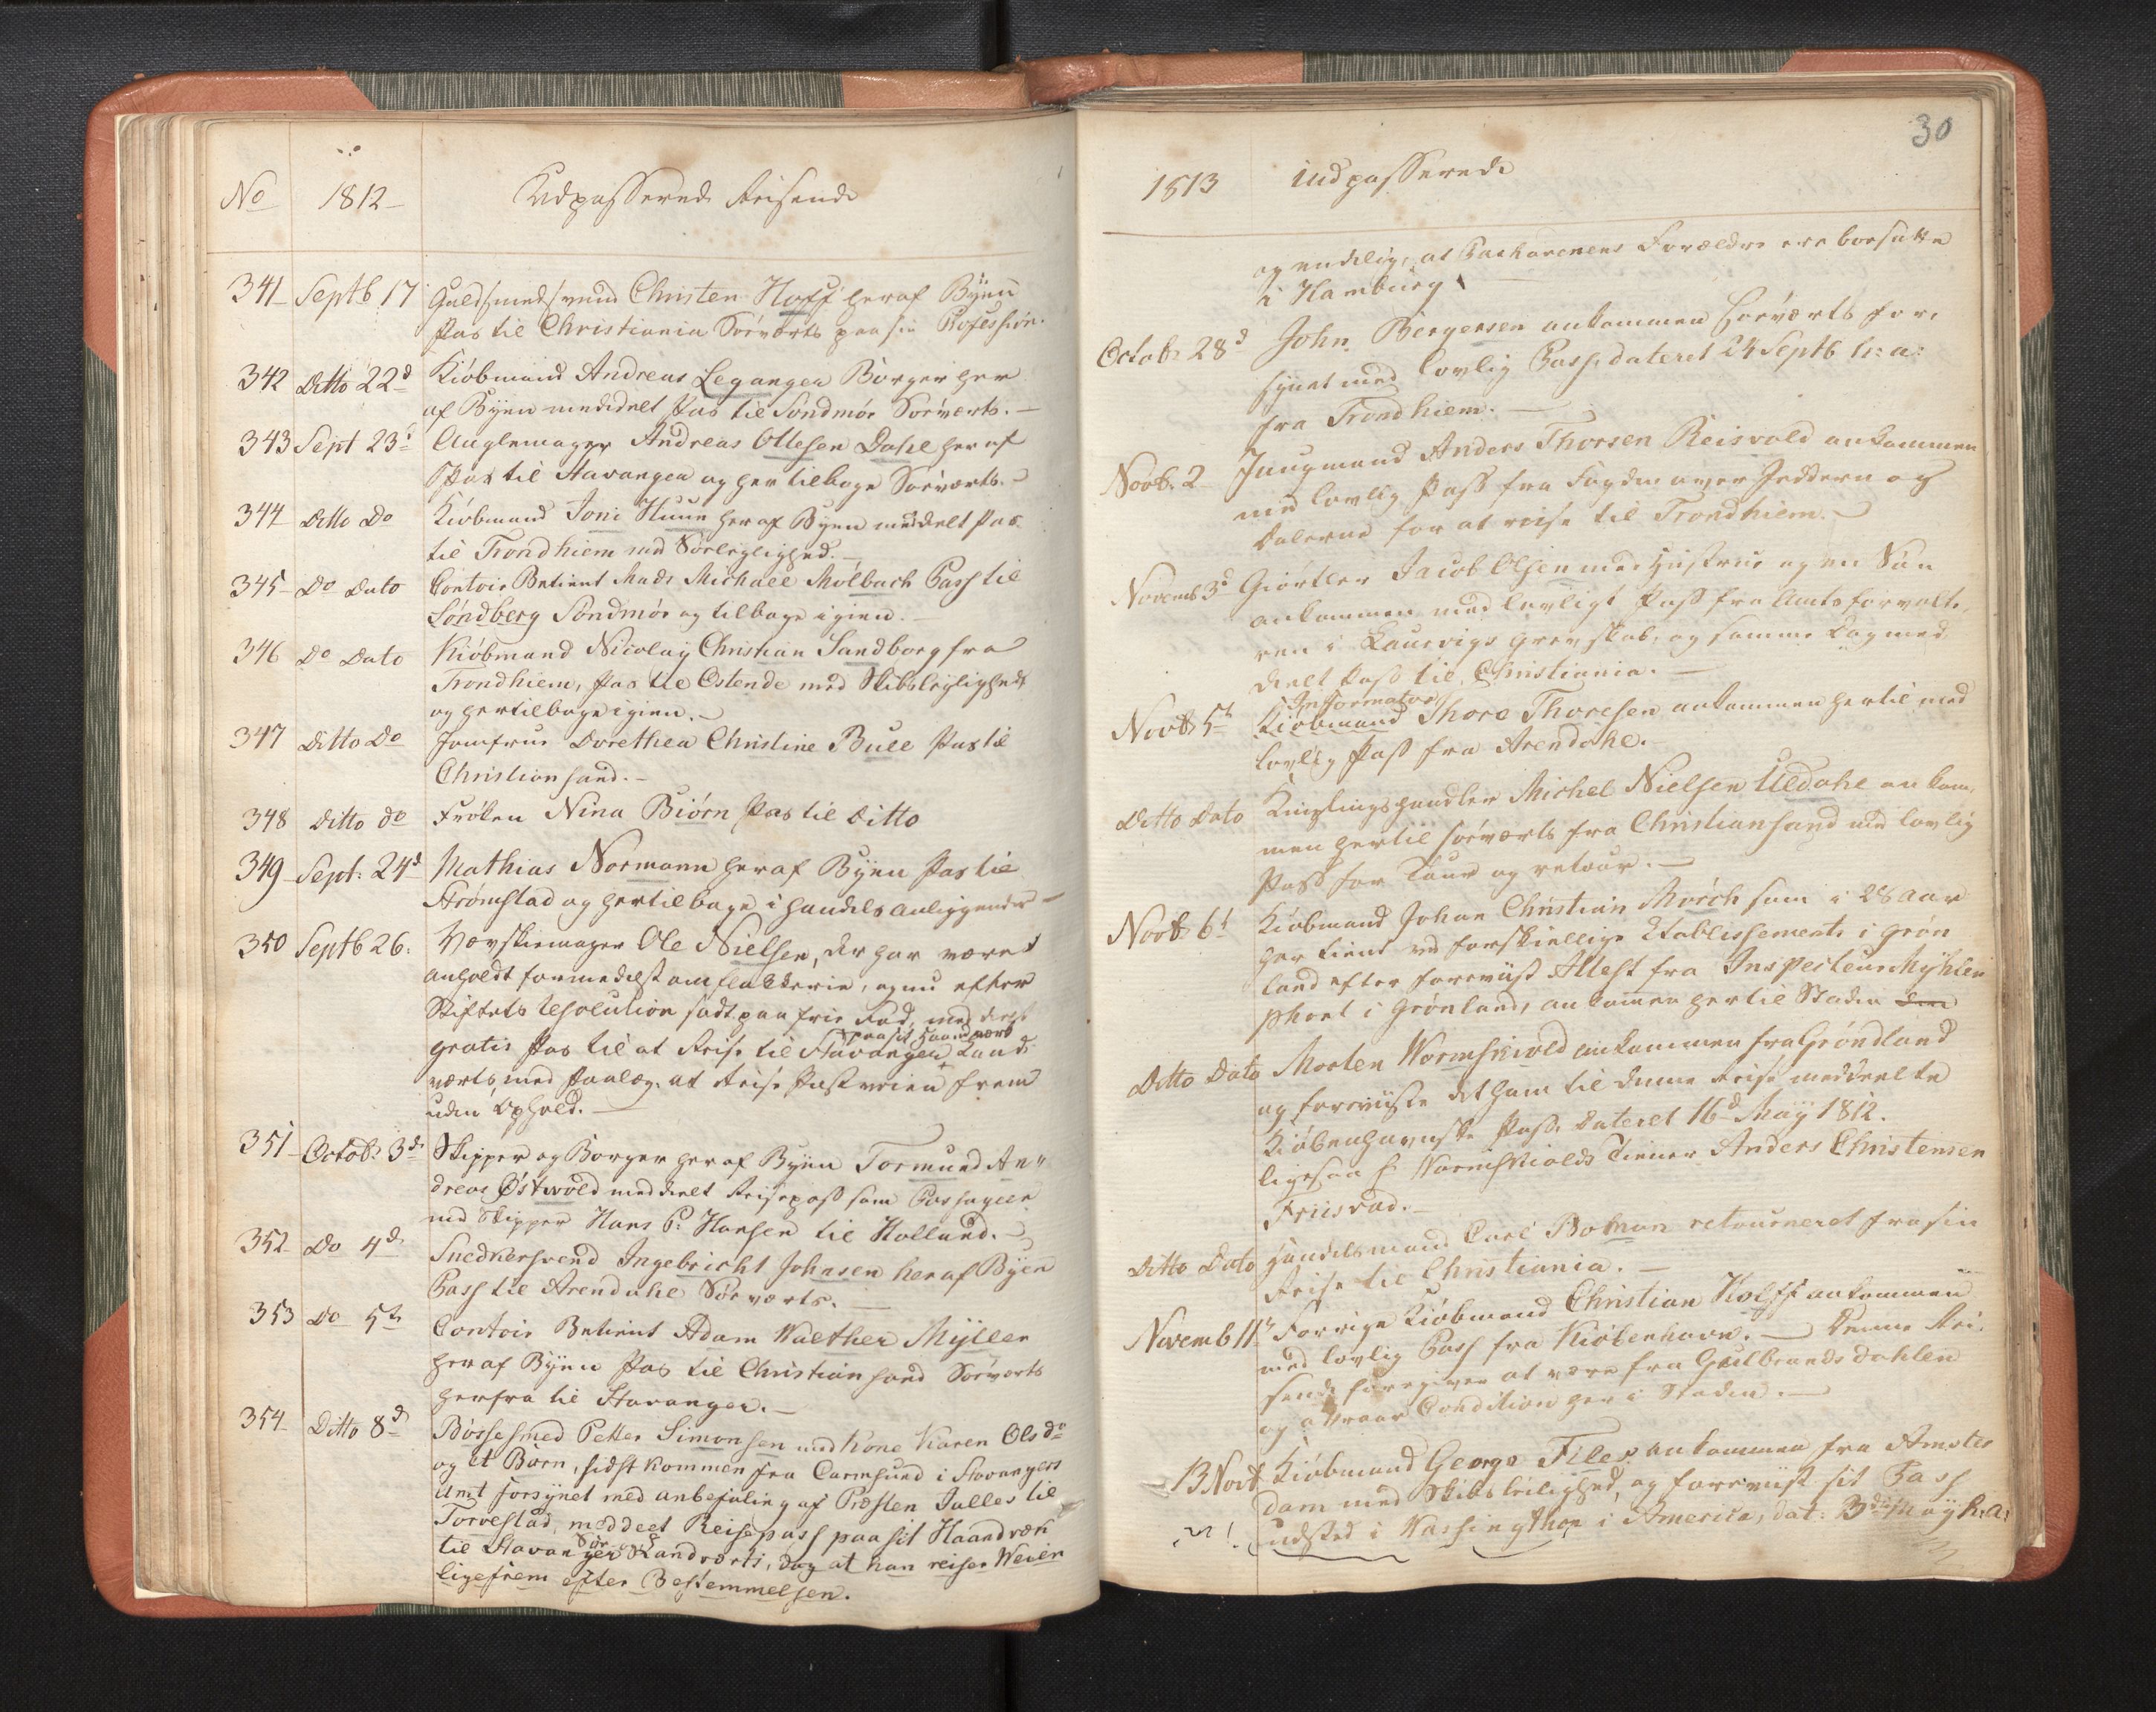 No 1812 Udpasserede Reisende
341 Septb 17 Guldsmedsvend Christen Hoff heraf Byen
Pas til Christiania Söeværts paa sin Profession.
342 Ditto 22d Kiöbmand Andreas Leganger Borger her
af Byen meddelt Pas til Söndmör Söeværts.
343 Sept 23d Andreas Ottesen Dahl heraf
Pas til Stavanger og her tilbage Söeværts.
344 Ditto Do Kiöbmand Joni Huun heraf Byen meddelt Pas
til Trondhiem med Söeleylighed.
345 Do Dato Contoir Betient Mads Michael Molbach Pass til
Söndberg Söndmör og tilbage igien.
346 Do Dato Kiöbmand Nicolay Christian Sandborg fra
Trondhiem, Pas til Ostende med Skibsleylighed
og hertilbage igien.
347 Ditto Do Jomfrue Dorethea Christine Bull Pas til
Christiansand.
348 Ditto do Fröken Nina Biörn Pas til Ditto
349 Sept. 24d Mathias Normann heraf Byen Pas til
Strömstad og hertilbage i Handels anliggender
350 Septb 26. Ole Nielsen, der har været
anholdt formedelst omflakkerie, og nu efter
Stiftets Resolution sadt paa frie Fod, meddelt
paa sit Haandværk
gratis Pas til at Reise til Stavanger Land
værts med Paalæg at Reise Postveien frem
uden Ophold.
351 Octobr 3d Skipper og Borger heraf Byen Tormund An-
dreas Östwold meddeelt Reisepass som Passageer
med Skipper Hans P. Hansen til Holland.
352 Do 4d Snedkersvend Ingebricht Johnsen heraf Byen
Pass til Arendahl Söeværts.
353 Do 5te Contoir Betient Adam Walther Myller
heraf Byen Pas til Christiansand Söeværts
herfra til Stavanger.
354 Ditto 8d Bössesmed Petter Simonsen med Kone Karen Olsdr
og et Barn, sidst kommen fra Carmsund i Stavangers
Amt forsynet med anbefaling af Præsten Salles til
Torvestad, meddeelt Reisepass paa sit Haandværk
Sör
til Stavanger Landværts, dog at han reiser Weien
ligefrem efter Bestemmelsen.
30
1813 indpasserede
og endelig, at Pashavenens Forældre ere bosatte
i Hamburg
Octob. 28d John Bergersen ankommen söeværts for-
synet med lovlig Pass, dateret 24 Septb h: a:
fra Trondhiem.
Novb. 2 Jnugmand Anders Thorsen Reisvold ankommen
med lovlig Pass fra Fogden over Jedderen og
Dalerne for at reise til Trondhiem.
Novemb 3d Giörtler Jacob Olsen med Hustrue og en Sön
ankommen med lovligt Pass fra Amtsforvalte-
ren i Laurvigs Grevskab, og samme Dag med-
deelt Pass til Christiania.
Informator
Novb 5t Kiöbmand Thore Thoresen ankommen hertil med
lovlig Pass fra Arendahl.
Ditto Dato Michel Nielsen Uldahl ankom-
men hertil söeværts fra Christiansand med lovlig
Pass for Tour og retour.
Novb 6t Kiöbmand Johan Christian Mörch som i 28 Aar
har tient ved forskiellige Etablissements i Grön
land efter foreviist Attest fra Inspecteur Myhlen
phort i Grönland, ankommen hertil Staden
Ditto Dato Morten Wormskiold ankommen fra Gröndland
og foreviiste det ham til denne Reise meddeelte
Kiöbenhavnske Pass. Dateret 16d May 1812.
ligesaa hr Wormskiolds Tiener Anders Christensen
Friisvad.
Ditto Dato Handelsmand Carl Bohman retourneret fra sin
Reise til Christiania.
Novemb 11 Forrige Kiöbmand Christian Kolff ankommen
med lovlig Pass fra Kiöbenhavn. Denne Rei-
sende foregiver at være fra Gulbrandsdahlen
og attraar Condition her i Staden.
13 Novb Kiöbmand George Files ankommen fra Amster
dam med Skibsleilighed, og foreviist sit Pass
udsted i Wassingthon i America, dat: 3die May h: a: